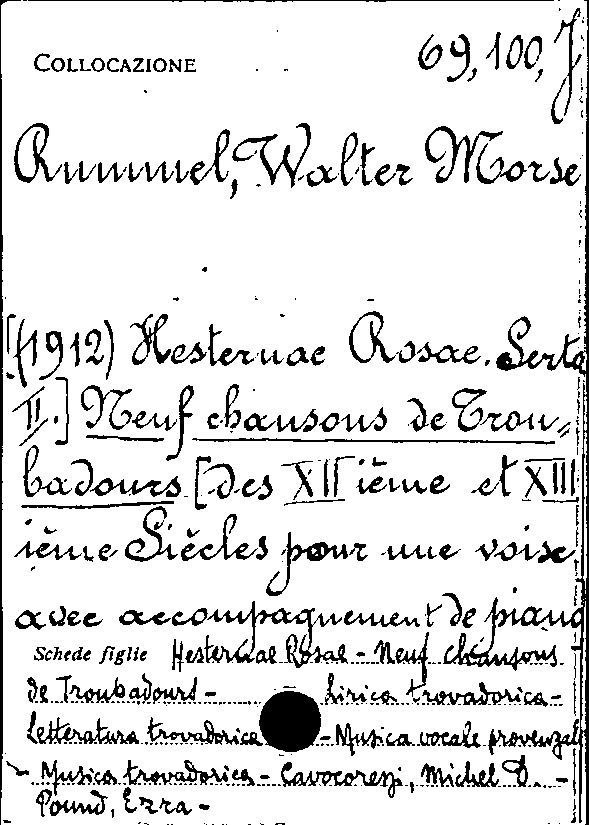 COLLOCAZIONE 69,100,J
Rummel, Walter Morse
[(1912) Hesternae Rosae. Serta
II.] Neuf chansons de Trou-
badours [des XII ième et XIII
ième Siècles pour une voise
avec accompagnement de piano
Schede figlie Hesternae Rosae - Neuf chansons -
de Troubadours - Lirica trovadorica -
Letteratura trovadorica - Musica vocale provenzale
- Musica trovadorica - Cavocorezzi, Michel D. -
Pound, Ezra -